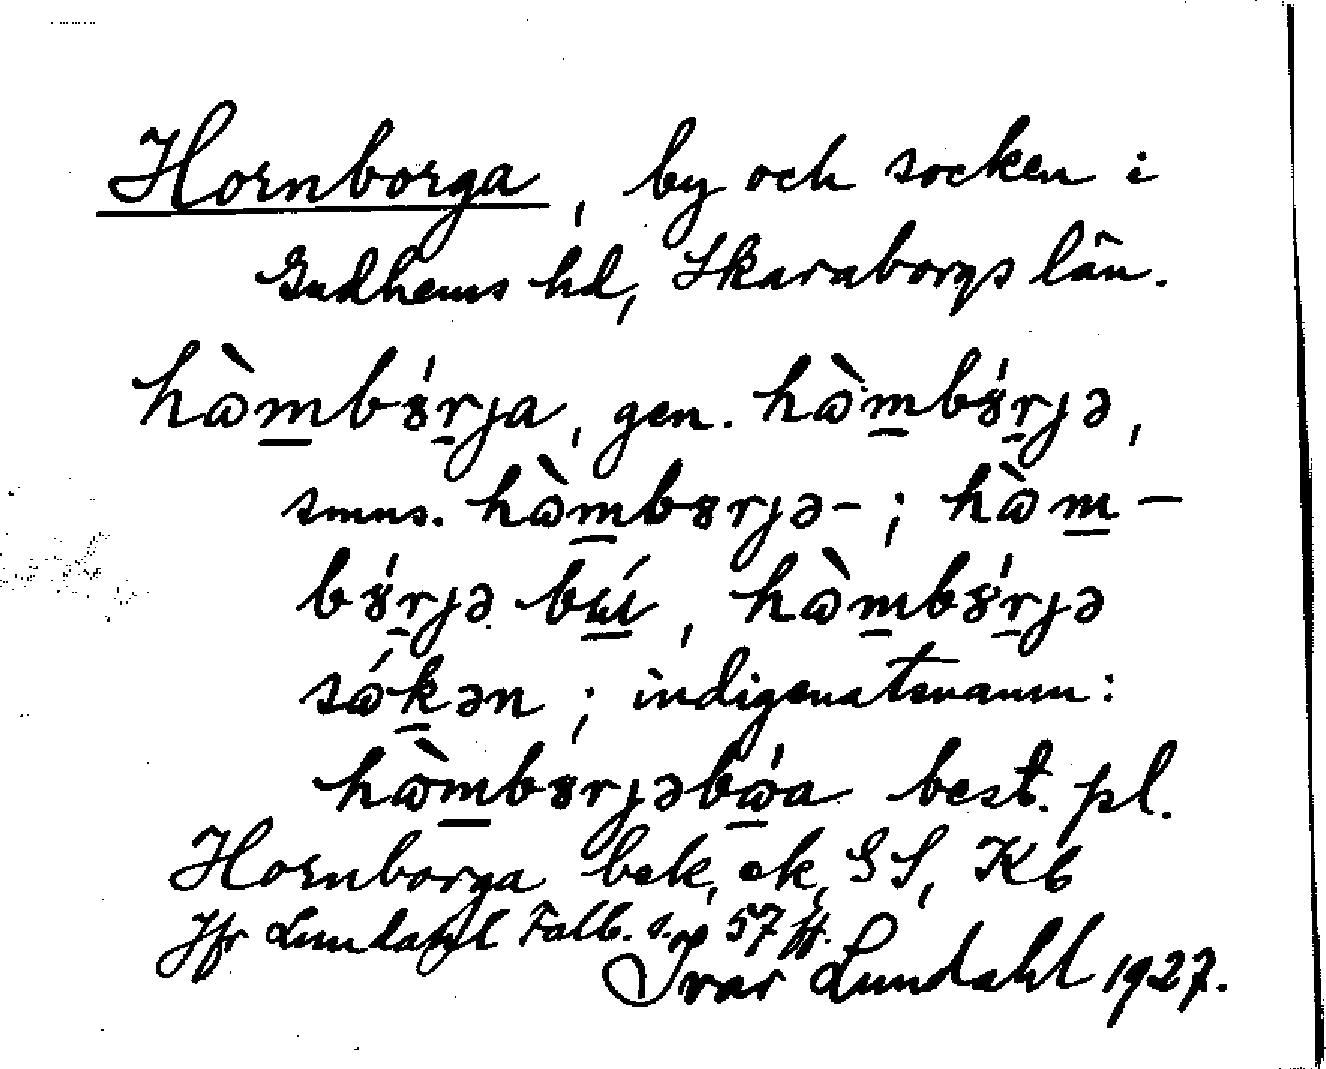 Hornborga, by och socken i
Gudhems hd, Skaraborgs län.
hɷ̀m̲bɤ́r̲ȷa, gen. hɷ̀m̲bɤ́r̲ȷə,
smns. hɷ̀m̲bɤrȷə- ; hɷ̀m̲-
bɤ́r̲ȷə bɯ̲́, hɷ̀m̲bɤ́r̲ȷə
sɷ́k̲ən ; indigenatsnamn:
hɷ̀m̲bɤrȷəbɷ̲́a best. pl.
Hornborga bek, ek, GS, Kb
Jfr Lundahl Falb. s. 57 ff.
Ivar Lundahl 1927.